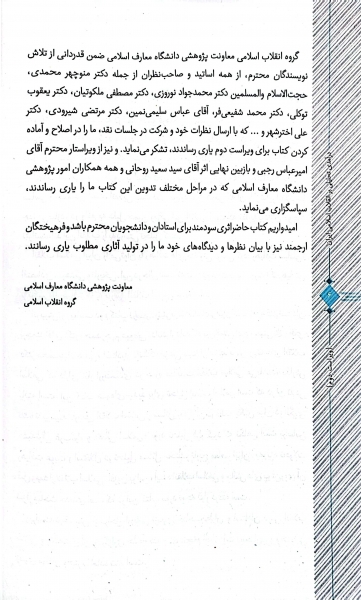 گروه انقلاب اسلامی معاونت پژوهشی دانشگاه معارف اسلامی ضمن قدردانی از تلاش
نویسندگان محترم، از همه اساتید و صاحب‌نظران از جمله دکتر منوچهر محمدی،
حجت‌الاسلام والمسلمین دکتر محمدجواد نوروزی، دکتر مصطفی ملکوتیان، دکتر یعقوب
توکلی، دکتر محمد شفیعی‌فر، آقای عباس سلیمی‌نمین، دکتر مرتضی شیرودی، دکتر
علی اخترشهر و ... که با ارسال نظرات خود و شرکت در جلسات نقد، ما را در اصلاح و آماده
کردن کتاب برای ویراست دوم یاری رساندند، تشکر می‌نماید. و نیز از ویراستار محترم آقای
امیرعباس رجبی و بازبین نهایی اثر آقای سید سعید روحانی و همه همکاران امور پژوهشی
دانشگاه معارف اسلامی که در مراحل مختلف تدوین این کتاب ما را یاری رساندند،
سپاسگزاری می‌نماید.
امیدواریم کتاب حاضر اثری سودمند برای استادان و دانشجویان محترم باشد و فرهیختگان
ارجمند نیز با بیان نظرها و دیدگاه‌های خود ما را در تولید آثاری مطلوب یاری رسانند.
معاونت پژوهشی دانشگاه معارف اسلامی
گروه انقلاب اسلامی
درآمدی تحلیلی بر انقلاب اسلامی ایران
۶
(ویراست دوم)